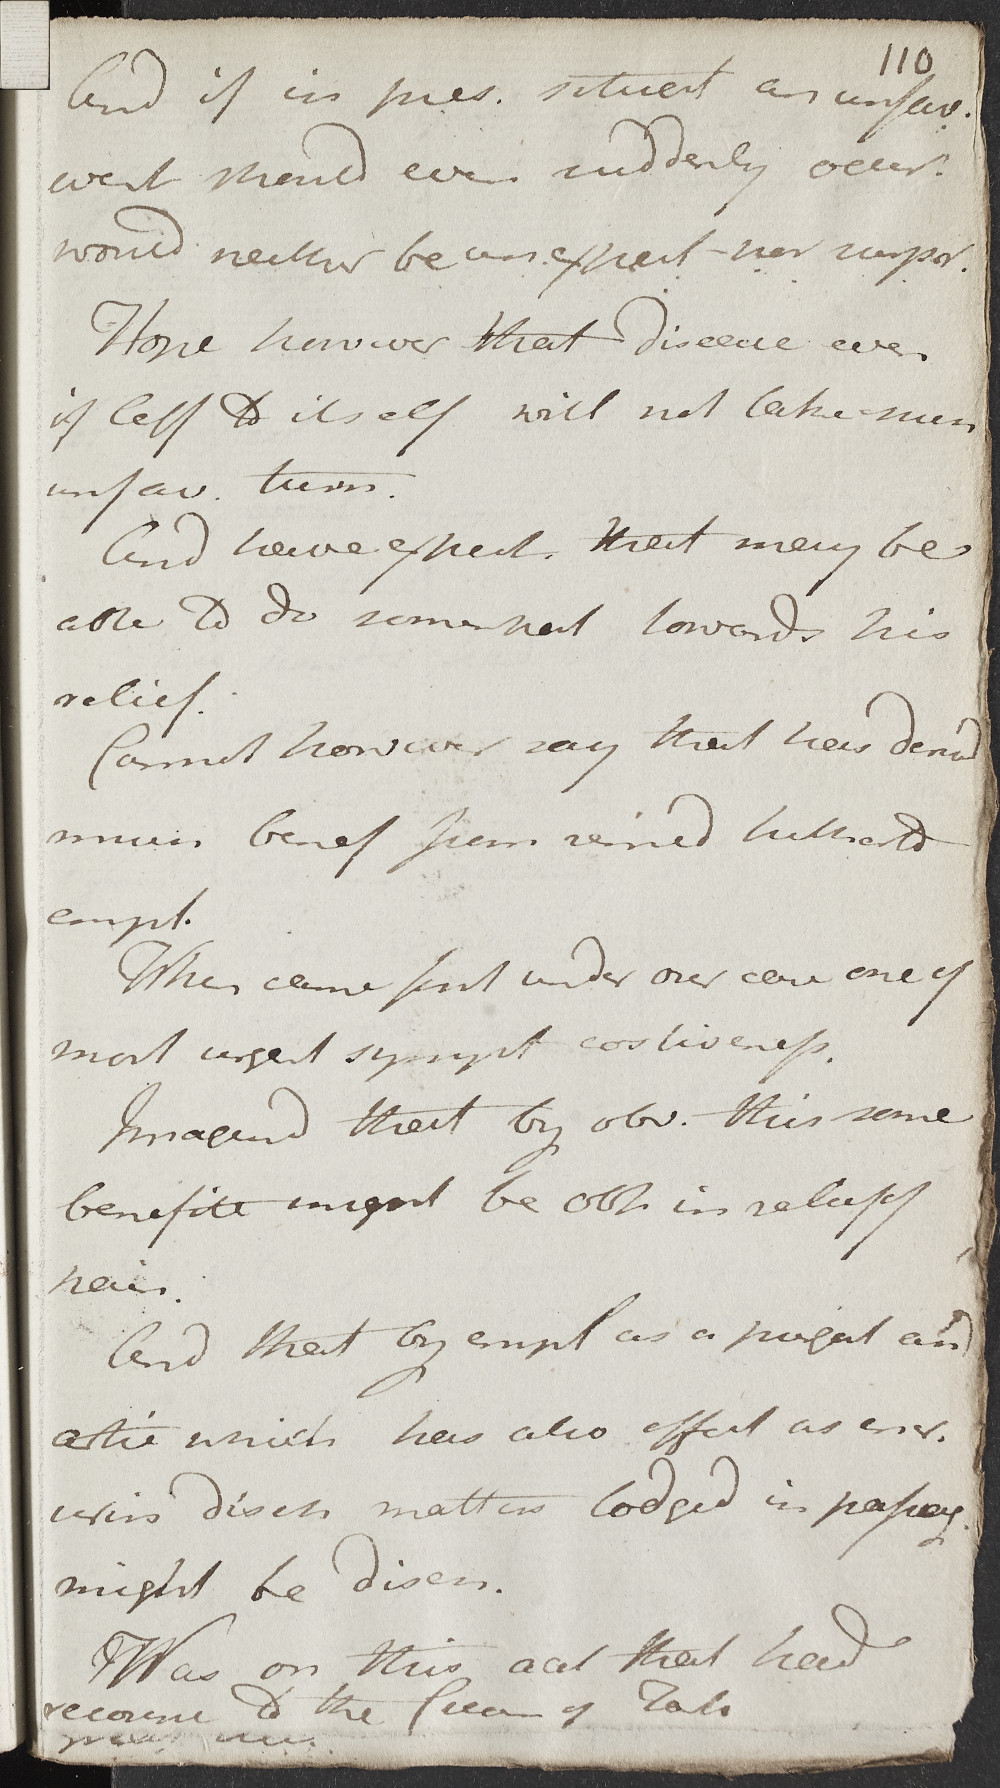 110
And if in pres. situat an unfav.
event should even suddenly occur.
would neither be unexpect nor surpr.
Hope however that disease even
if left to itself will not take such
unfav. turn.
And have expect. that may be
able to do somewhat towards his
relief.
Cannot however say that has derived
much benef from remed hitherto
empl.
When came first under our care one of
most urgent sympt costiveness.
Imagined that by obv. this some
benefite might be obt in respect
pain.
And that by empl as a purgat and
which has also effect as
urin disch matters lodged in passag.
might be disch.
Was on this acct that had
recourse to the Cream of Tart